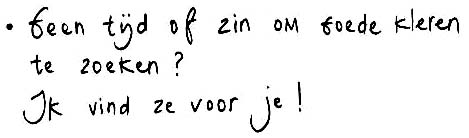 • Geen tijd of zin om goede kleren
te zoeken?
Ik vind ze voor je!